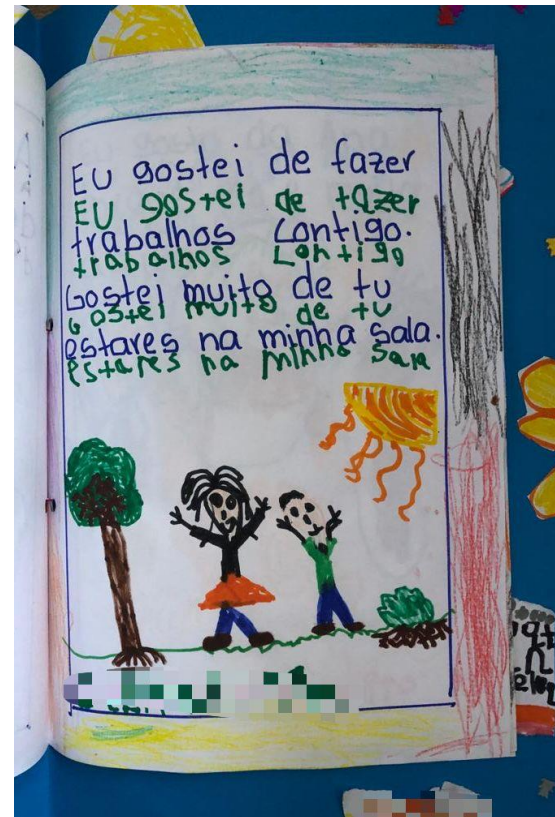 EU gostei de fazer
EU gostei de fazer
trabalhos contigo.
trabalhos contigo
Gostei muito de tu
Gostei muito de tu
estares na minha sala.
estares na minha sala